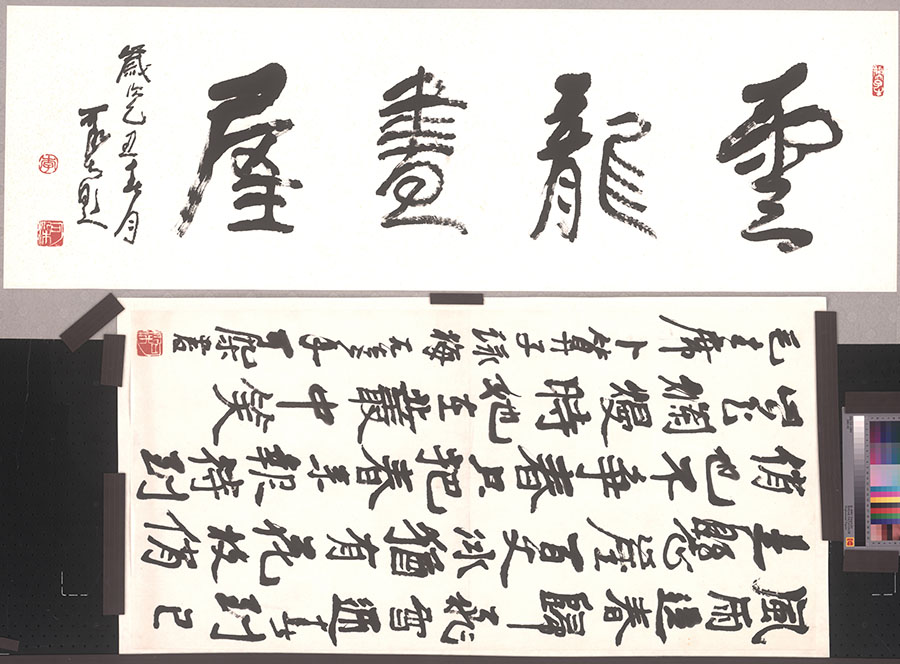 雲龍畫屋
歲次乙丑春月
可染題
風雨送春歸飛雪迎春到已
是懸崖百丈冰猶有花枝俏
俏也不爭春只把春來報待到
山花爛漫時她在叢中笑
毛主席卜算子詠梅 可染書